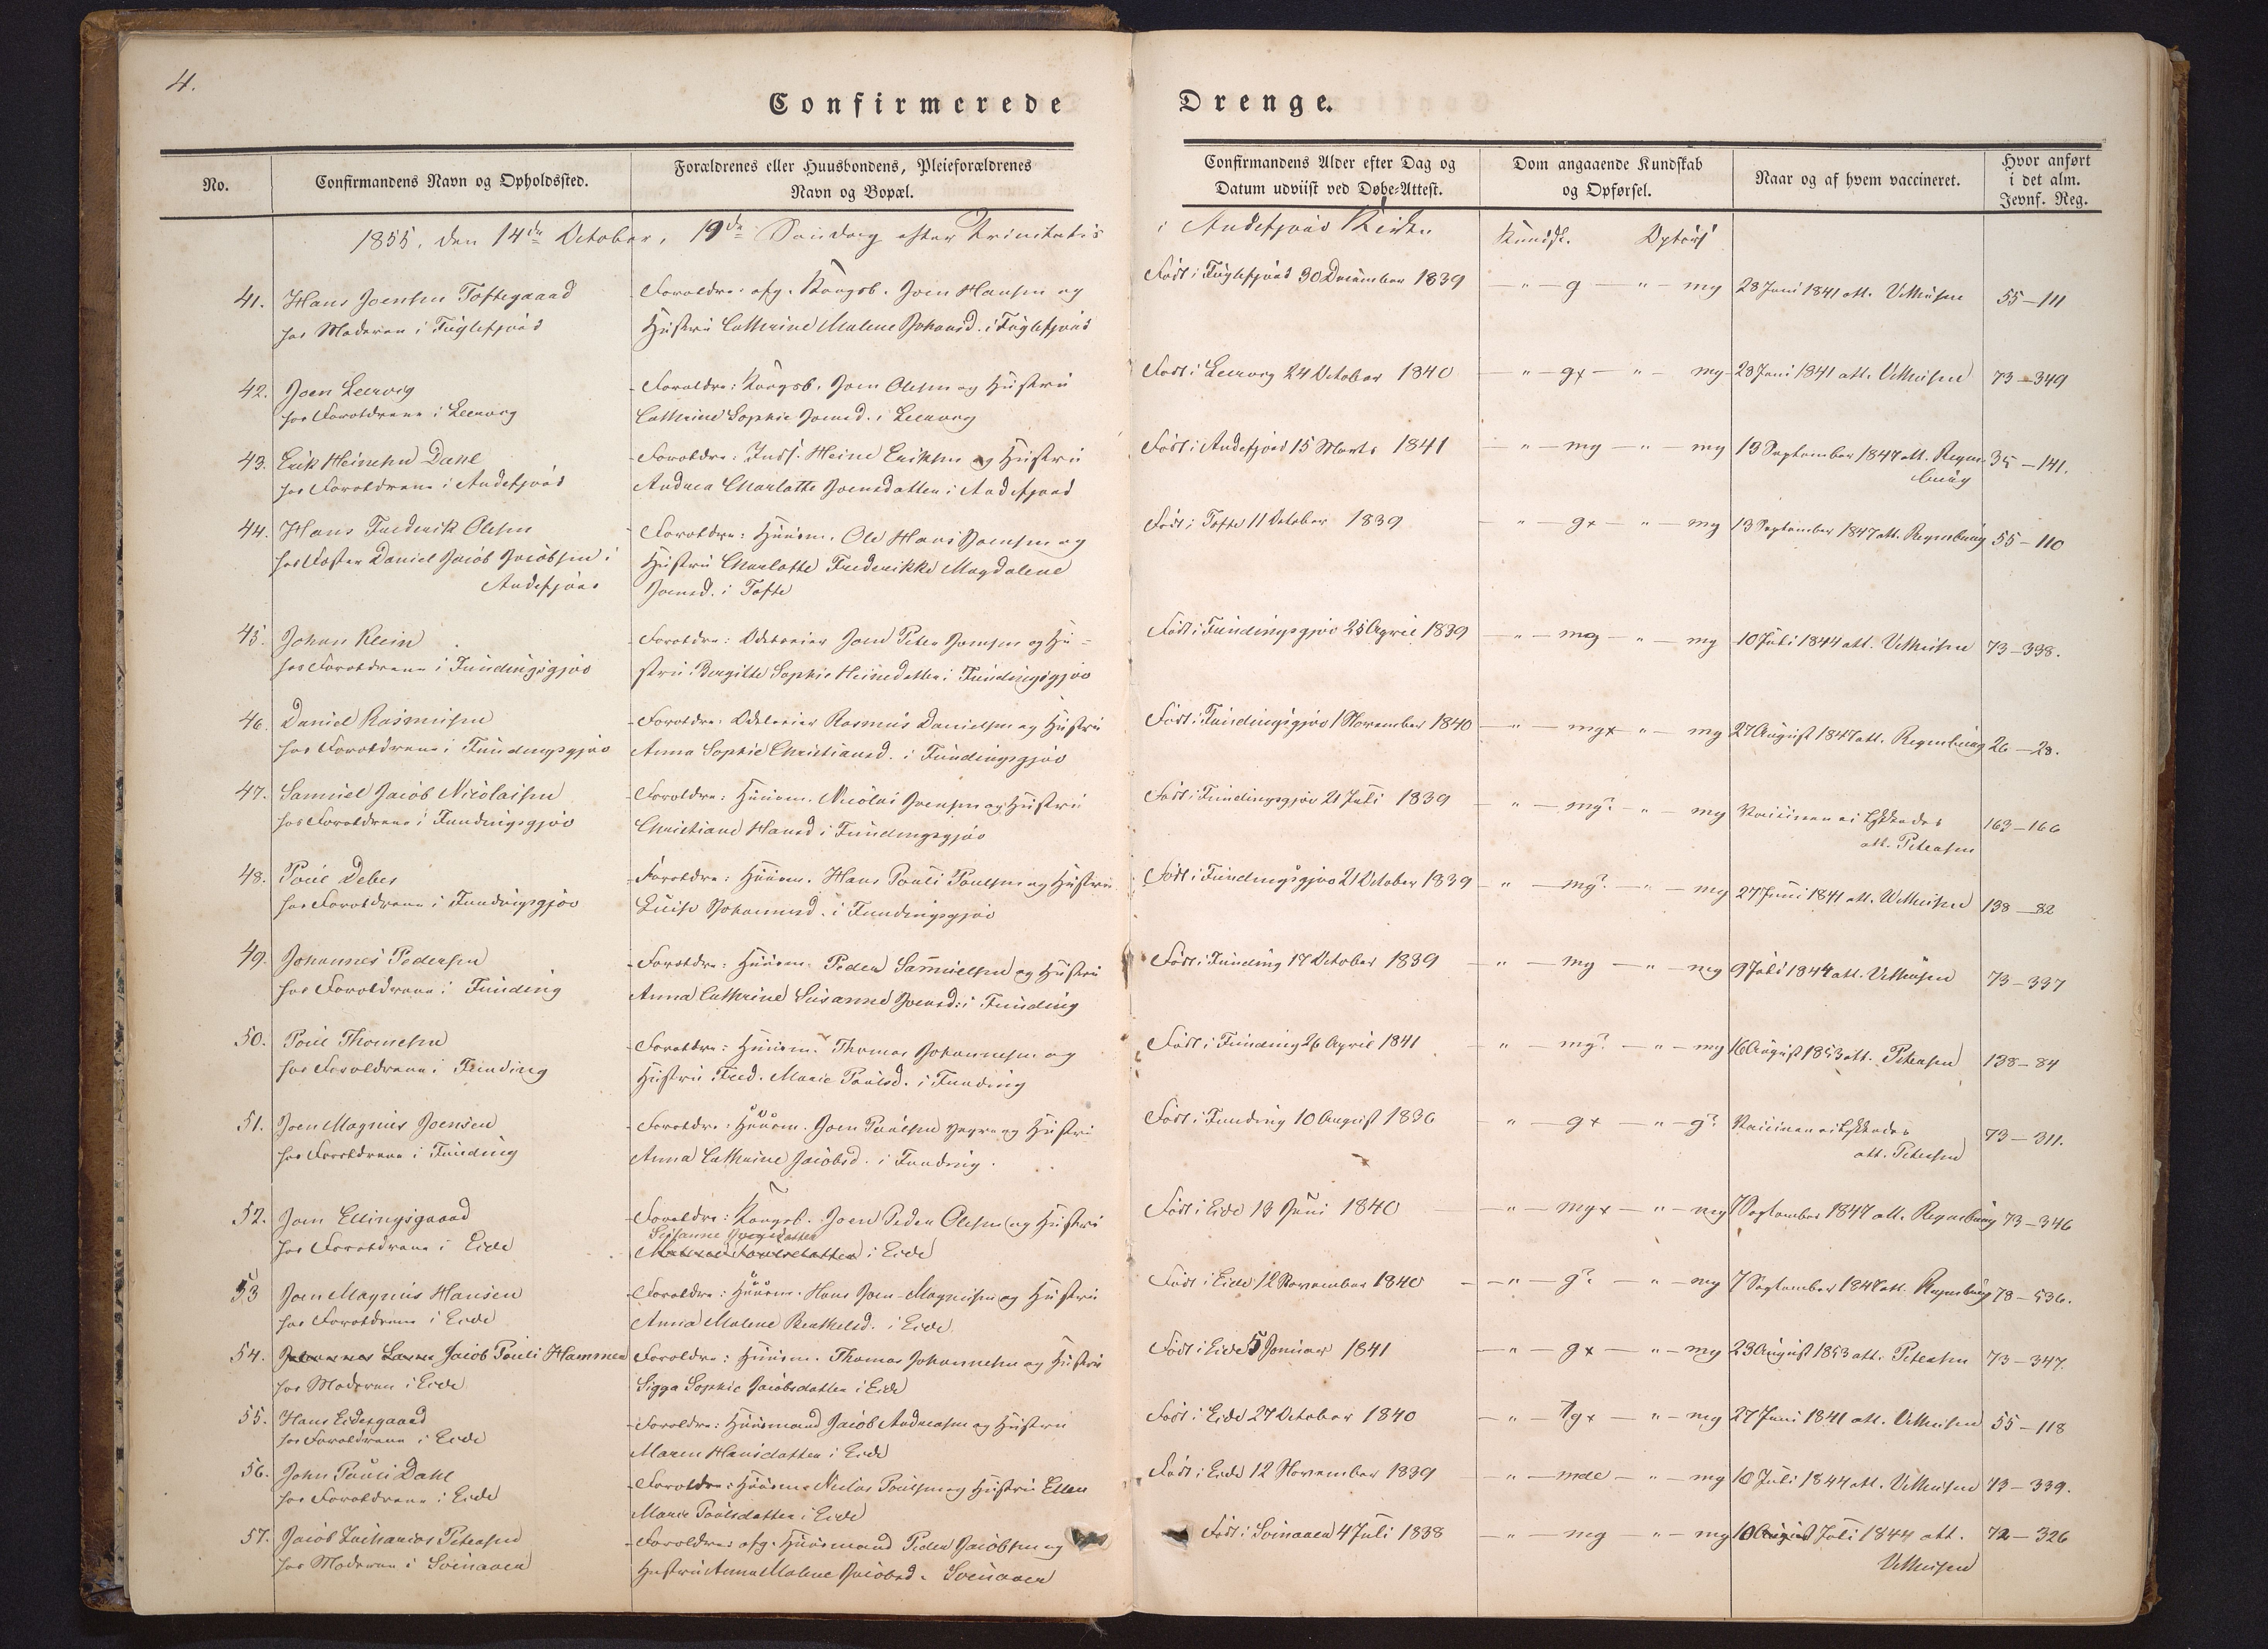 4.
Confirmerede Drenge.
No.
Confirmandens Navn og Opholdssted.
Forældrenes eller Huusbondens, Pleieforældrenes
Navn og Bopæl.
Confirmandens Alder efter Dag og
Datum udviist ved Døbe-Attest.
Dom angaaende Kundskab
og Opførsel.
Naar og af hvem vaccineret.
Hvor anført
i det alm.
Jevnf. Reg.
1855, den 14de October, 19de Søndag efter Trinitatis i Andefjord Kirke
Kundsk. Opførs
41. Hans Joensen Toftegaard
hos Moderen i Fuglefjord
Forældre: afg. Kongsb. Joen Hansen og
Hustru Cathrine Malene Johansd. i Fuglefjord
Født i Fuglefjord 30 December 1839
— " — g — " — mg
28 Juni 1841 att.
55–111
42. Joen Leervig
hos Forældrene i Leervig
Forældre: Kongsb. Joen Olesen og Hustru
Cathrine Sophie Joensd. i Leervig
Født i Leervig 24 October 1840
— " — gx — " — mg
28 Juni 1841 att.
73–349
43. Erik Heinesen Dahl
hos Forældrene i Andefjord
Forældre: Inds. Heine Eriksen og Hustru
Andrea Charlotte Joensdatter i Andefjord
Født i Andefjord 15 Marts 1841
— " — mg — " — mg
13 September 1847 att. Regen-
burg
35–141.
44. Hans Frederik Olesen
hos Daniel Jacob Jacobsen i
Andefjord
Forældre: Huusm. Ole Hans Joensen og
Hustru Charlotte Frederikke Magdalene
Joensd. i Tofte
Født i Tofte 11 October 1839
" — gx — " — mg
13 September 1847 att. Regenburg
55–110
45. Johan Klein
hos Forældrene i Fundingsgjov
Forældre: Odelseier Joen Peter Joensen og Hu-
stru Birgitte Sophie Heinedatter i Fundingsgjov
Født i Fundingsgjov 25 April 1839
— " — mg — " — mg
10 Juli 1844 att.
73–338.
46. Daniel Rasmusen
hos Forældrene i Fundingsgjov
Forældre: Odelseier Rasmus Danielsen og Hustru
Anna Sophie Christiansd. i Fundingsgjov
Født i Fundingsgjov 1 November 1840
— " — mgx — " — mg
27 August 1847 att. Regenburg
26–28.
47. Samuel Jacob Nicolaisen
hos Forældrene i Fundingsgjov
Forældre: Huusm. Nicolai Joensen og Hustru
Christiane Hansd i Fundingsgjov
Født i Fundingsgjov 21 Juli 1839
" — mg? — " — mg
Vaccinen ei lykkedes
att. Petersen
163–166
48. Poul Debes
hos Forældrene i Fundingsgjov
Forældre: Huusm. Hans Pouli Poulsen og Hustru
Luise Johannesd. i Fundingsgjov
Født i Fundingsgjov 21 October 1839
— " — mg? — " — mg
27 Juni 1841 att.
138–82
49. Johannes Pedersen
hos Forældrene i Funding
Forældre: Huusm. Peder Samuelsen og Hustru
Anna Cathrine Susanne Joensd. i Funding
Født i Funding 17 October 1839
— " — mg — " — mg
9 Juli 1844 att.
73–337
50. Poul Thomesen
hos Forældrene i Funding
Forældre: Huusm. Thomas Johannesen og
Hustru Fred. Marie Poulsd. i Funding
Født i Funding 26 April 1841
— " — mg? — " — mg
16 August 1853 att. Petersen
138–84
51. Joen Magnus Joensen
hos Forældrene i Funding
Forældre: Huusm. Joen Poulsen og Hustru
Anna Cathrine Jacobsd. i Funding.
Født i Funding 10 August 1836
" — gx — " — g?
Vaccinen ei lykkedes
att. Petersen
73–311.
52. Joen Ellingsgaard
hos Forældrene i Eide
Forældre: Kongsb. Joen Peder Olesen og Hustru
Susanne Joensdatter
i Eide
Født i Eide 13 Juni 1840
— " — mgx — " — mg
7 September 1847 att. Regenburg
73–346
53 Joen Magnus Hansen
hos Forældrene i Eide
Forældre: Huusm. Hans Joen-Magnusen og Hustru
Anna Malene Berthelsd. i Eide
Født i Eide 12 November 1840
— " — g? — " — mg
7 September 1847 att. Regenburg
78–536.
54. Jacob Pouli Hammer
hos Moderen i Eide
Forældre: Huusm. Thomas Johannesen og Hustru
Sigga Sophie Jacobsdatter i Eide
Født i Eide 5 Januar 1841
— " — gx — " — mg
23 August 1853 att. Petersen
73–347.
55. Hans Eidesgaard
hos Forældrene i Eide
Forældre: Huusmand Jacob Andreasen og Hustru
Maren Hansdatter i Eide
Født i Eide 27 October 1840
— " — gx — " — mg
27 Juni 1841 att.
55–118
56. John Pouli Dahl
hos Forældrene i Eide
Forældre: Huusm. Niclas Poulsen og Hustru Ellen
Marie Poulsdatter i Eide
Født i Eide 12 November 1839
— " — mdl — " — mg
10 Juli 1844 att.
73–339.
57. Jacob Zacharias Petersen
hos Moderen i Svinaaen
Forældre: afg. Huusmand Peder Jacobsen og
Hustru Anna Malene Jacobsd. Svinaaen
Født i Svinaaen 4 Juli 1838
— " — mg — " — mg
10 August Juli 1844 att.
72–326